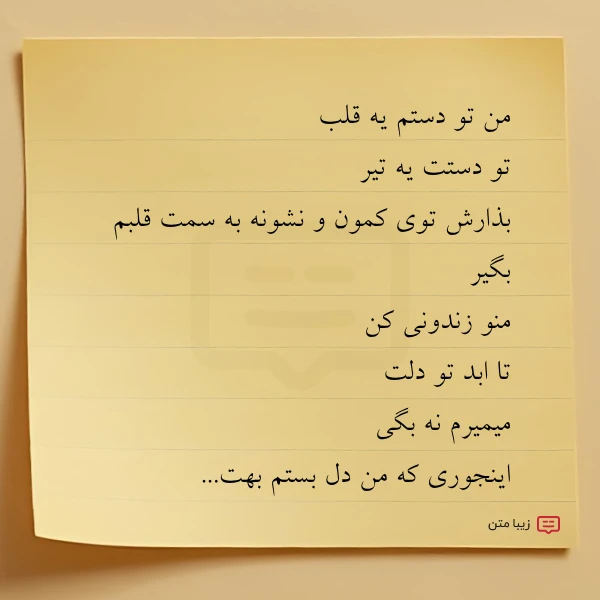 من تو دستم یه قلب
تو دستت یه تیر
بذارش توی کمون و نشونه به سمت قلبم
بگیر
منو زندونی کن
تا ابد تو دلت
میمیرم نه بگی
اینجوری که من دل بستم بهت...
زیبا متن